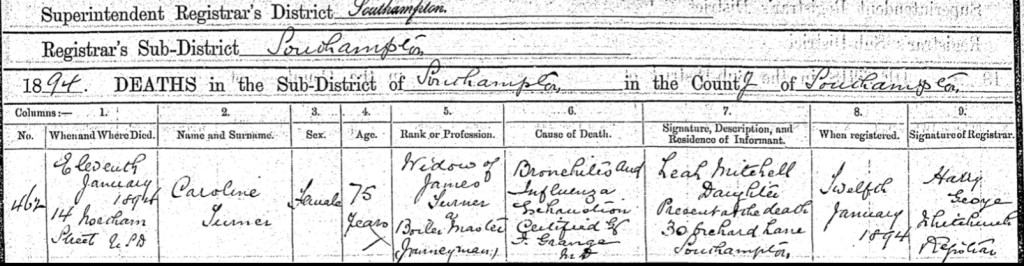 Superintendent Registrar's District Southampton.
Registrar's Sub-District Southampton
1894. DEATHS in the Sub-District of Southampton in the County of Southampton
Columns:— 1. 2. 3. 4. 5. 6. 7. 8. 9.
No. When and Where Died. Name and Surname. Sex. Age. Rank or Profession. Cause of Death. Signature, Description, and Residence of Informant. When registered. Signature of Registrar.
462
Eleventh
January
1894
14 Northam
Street USD
Caroline
Turner
Female
75
Years
Widow of
James
Turner
a
Boiler Master
(Journeyman)
Bronchitis and
Influenza
Exhaustion
Certified by
F. Grange
MD
Leah Mitchell
Daughter
Present at the death
30 Orchard Lane
Southampton
Twelfth
January
1894
Harry
George
Registrar